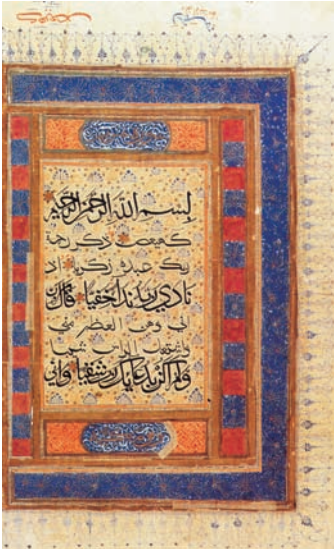 بسم الله الرحمن الرحيم
كهيعص ذكر رحمة
ربك عبده زكريا اذ
نادي ربه نداء خفيا قال رب
اني وهن العظم مني
واشتعل الراس شيبا
ولم اكن بدعائك رب شقيا واني